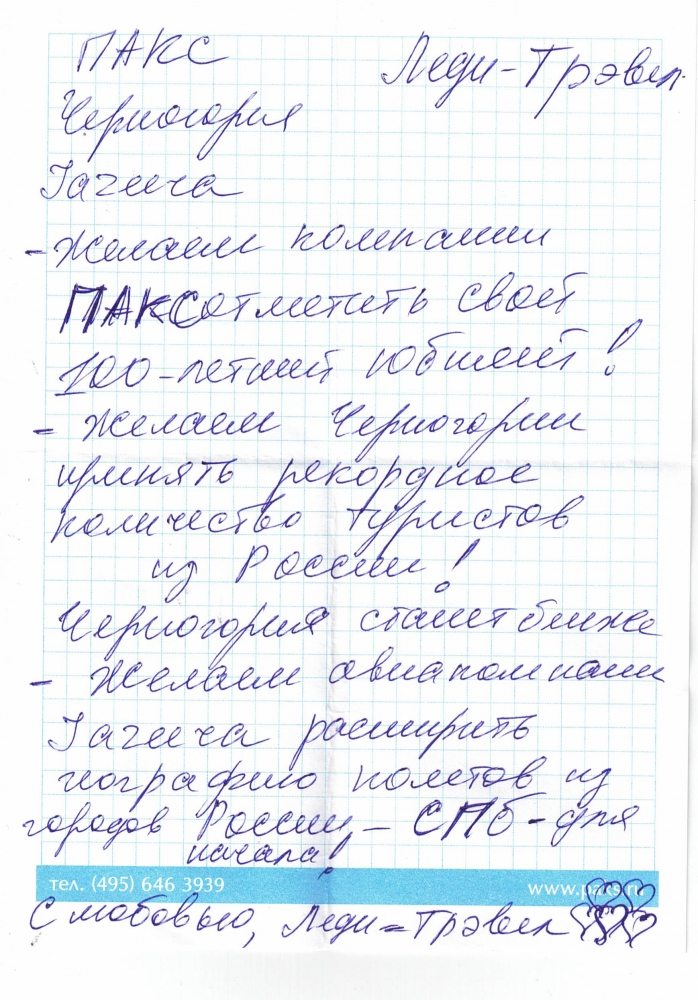 ПАКС Леди-Трэвел
Черногория
Ягеича
- Желаем компании
ПАКС отметить свой
100-летний юбилей!
- Желаем Черногории
принять рекордное
количество туристов
из России!
Черногория станет ближе
- Желаем авиакомпании
Ягеича расширить
географию полетов из
городов России - СПб - для
начала!
тел. (495) 646 3939 www.paks.ru
С любовью, Леди-Трэвел